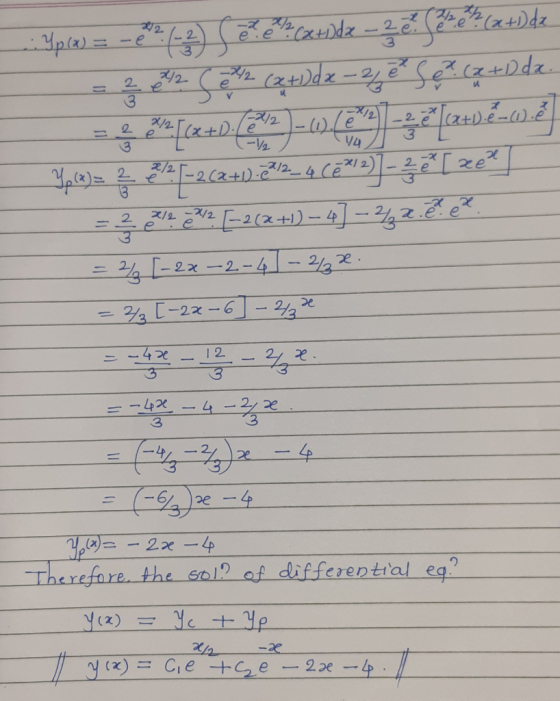 ∴ Yp(x) = -e^(x/2)·(-2/3) ∫ e^(-x)·e^(x/2)·(x+1)dx - 2/3 e^(-x)·∫ e^(x/2)·e^(x/2)·(x+1)dx
= 2/3 e^(x/2)· ∫ e^(-x/2) (x+1)dx - 2/3 e^(-x) ∫ e^(x)·(x+1)dx.
v u v u
= 2/3 e^(x/2)·[(x+1)·(e^(-x/2)/(-1/2)) - (1)·(e^(-x/2)/(1/4))] - 2/3 e^(-x)[(x+1)·e^x - (1)·e^x]
Yp(x) = 2/3 e^(x/2)·[-2(x+1)·e^(-x/2) - 4(e^(-x/2))] - 2/3 e^(-x)[xe^x]
= 2/3 e^(x/2)·e^(-x/2)·[-2(x+1) - 4] - 2/3 x·e^(-x)·e^x.
= 2/3 [-2x - 2 - 4] - 2/3 x.
= 2/3 [-2x - 6] - 2/3 x
= -4x/3 - 12/3 - 2/3 x.
= -4x/3 - 4 - 2/3 x.
= (-4/3 - 2/3)x - 4
= (-6/3)x - 4
Yp(x) = -2x - 4
Therefore. the solⁿ of differential eqⁿ
y(x) = Yc + Yp
// y(x) = C₁e^(x/2) + C₂e^(-x) - 2x - 4. //